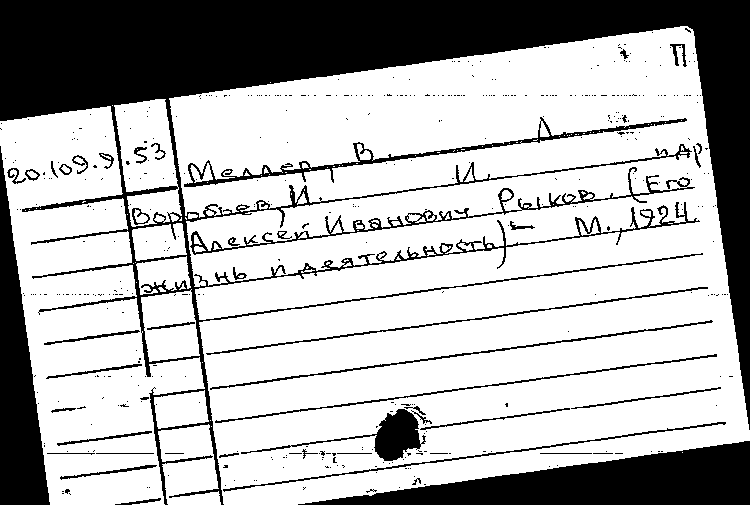 П
20.109.9.53 Меллер, В. Л.
Воробьев, И. И. и др.
Алексей Иванович Рыков. (Его
жизнь и деятельность) - М., 1924.